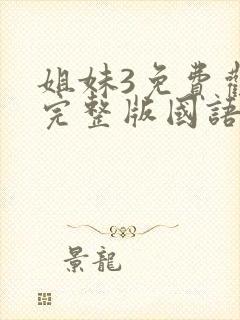 姐妹3免費
完整版國語
景龍